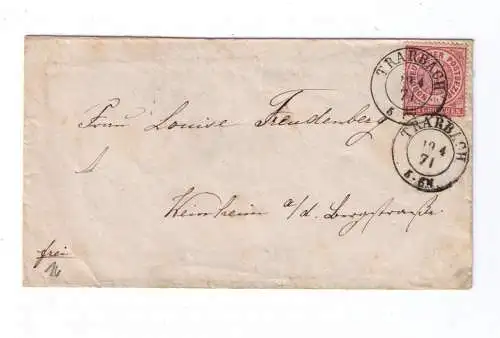 TRARBACH
TRARBACH
19 4
71
5-6N
Frau Louise Freudenberg
Weinheim a/d. Bergstraße
frei